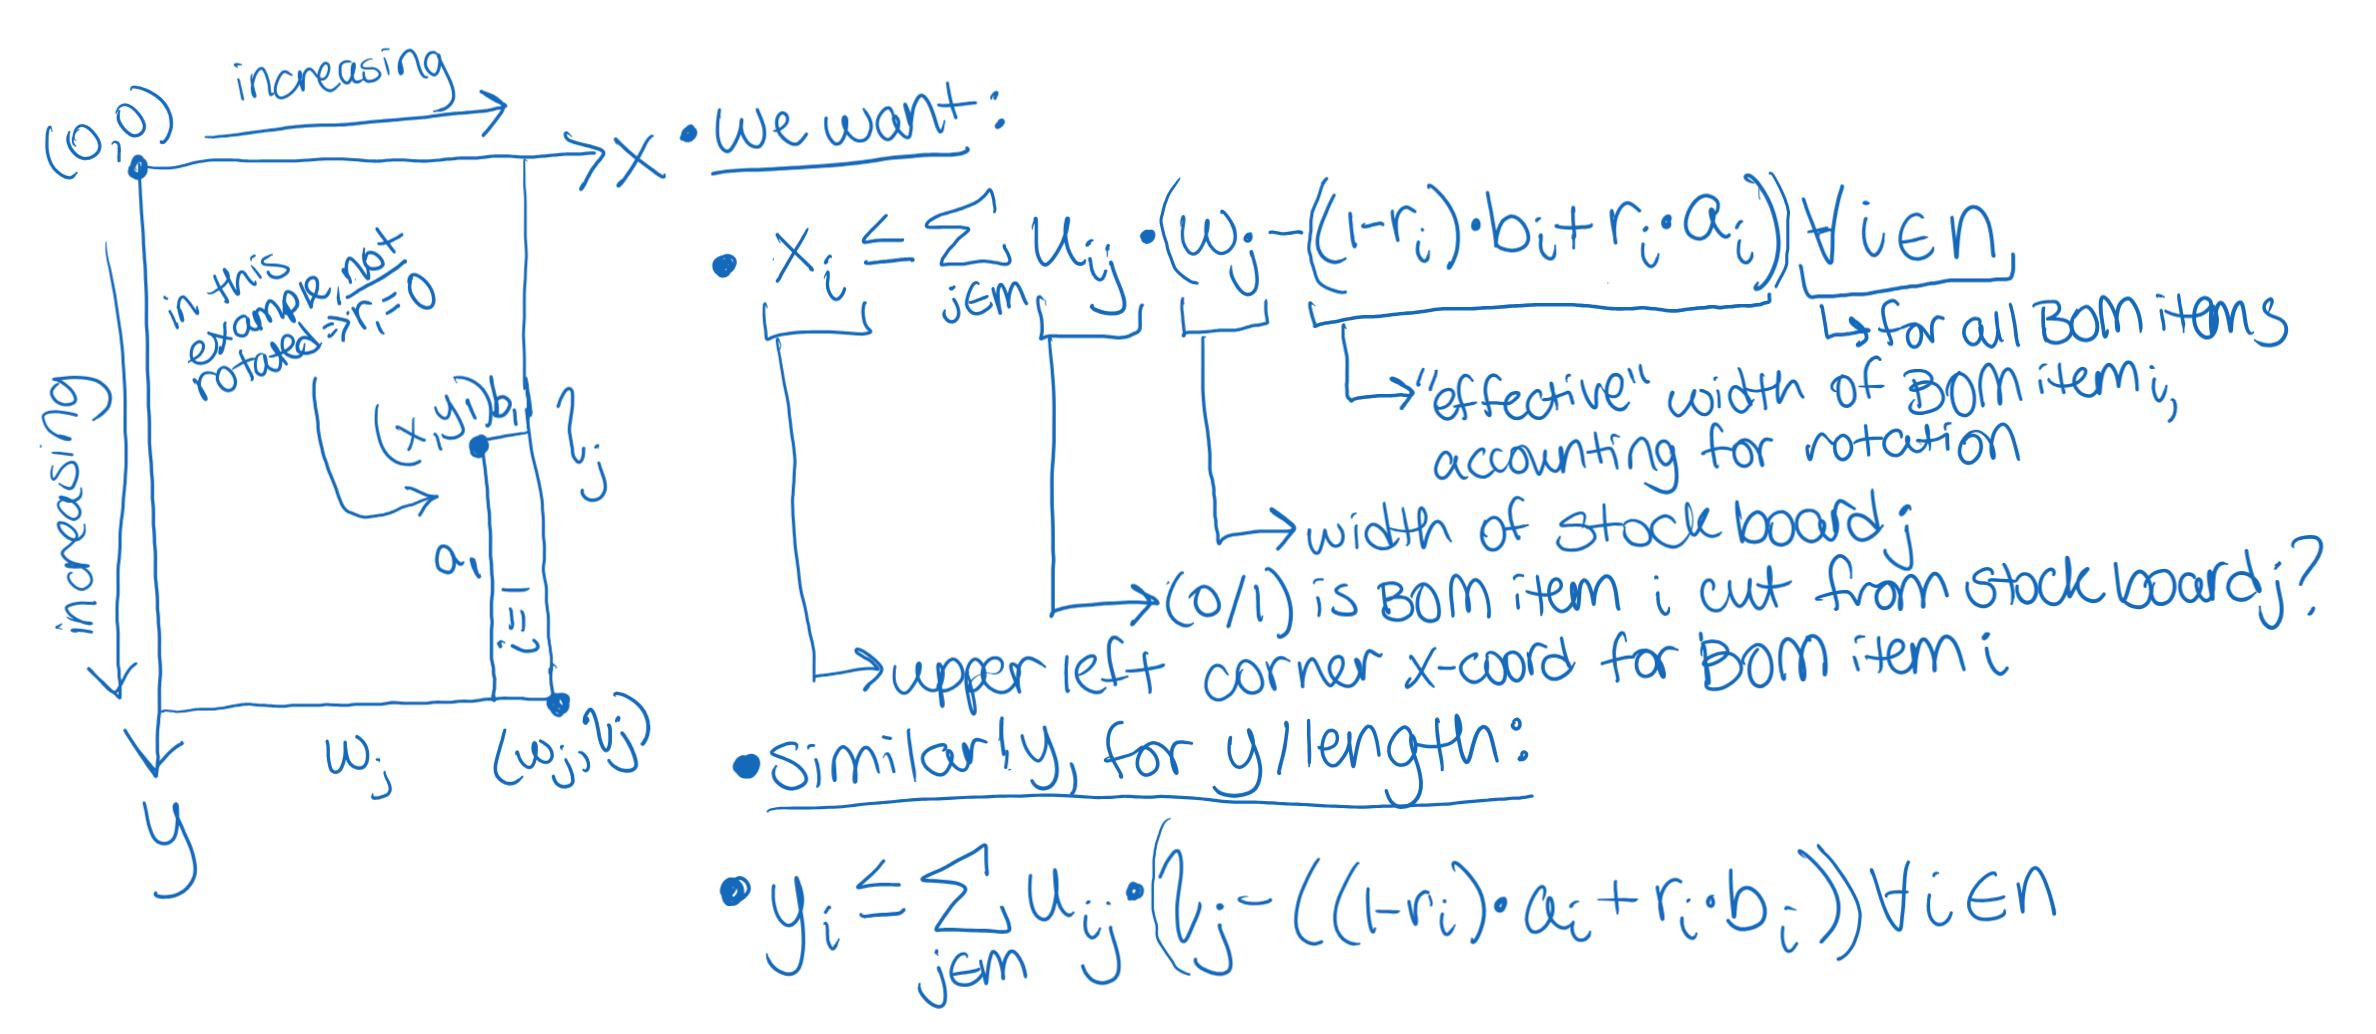 increasing
(0,0)
x
in this
example, not
rotated ⇒ r₁=0
increasing
(x₁,y₁) b₁
lⱼ
a₁
i=1
wⱼ
(wⱼ, lⱼ)
y
• we want:
• xᵢ ≤ ∑ uᵢⱼ • (wⱼ - ((1-rᵢ)•bᵢ + rᵢ•aᵢ)) ∀i∈n
j∈m
↳ for all BOM items
→ "effective" width of BOM item i,
accounting for rotation
→ width of stock board j
→ (0/1) is BOM item i cut from stock board j?
→ upper left corner x-coord for BOM item i
• similarly, for y/length:
• yᵢ ≤ ∑ uᵢⱼ • (lⱼ - ((1-rᵢ)•aᵢ + rᵢ•bᵢ)) ∀i∈n
j∈m